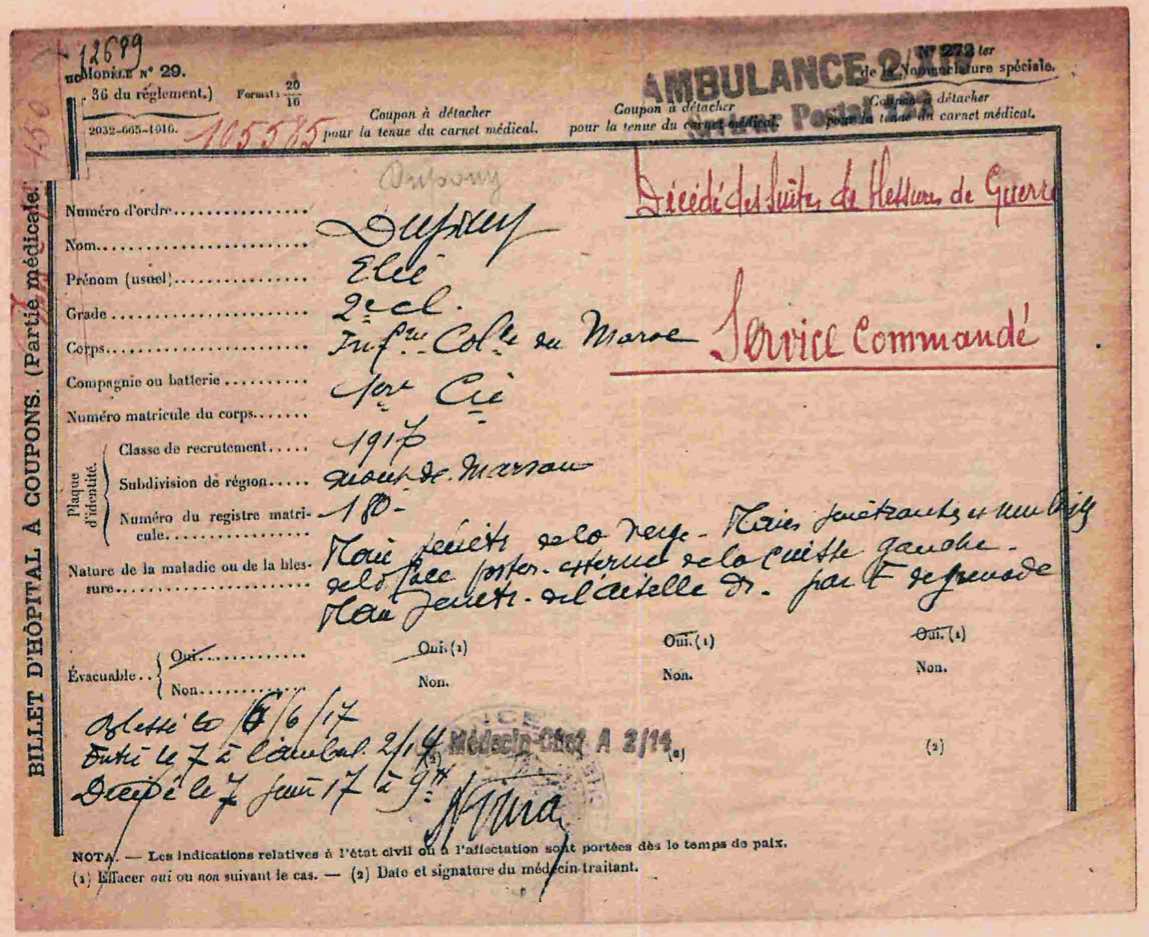 12699
MODÈLE N° 29.
36 du règlement.)
Format: 20/16
2032-665-1916.
150
105585
AMBULANCE 2/XIV
N° 272 ter
de la Nomenclature spéciale.
Postal
Coupon à détacher
pour la tenue du carnet médical.
Coupon à détacher
pour la tenue du carnet médical.
Coupon à détacher
pour la tenue du carnet médical.
BILLET D'HÔPITAL À COUPONS. (Partie médicale.
Dupouy
Décédé des suites de blessures de Guerre
Numéro d'ordre
Nom Dupouy
Prénom (usuel) Elie
Grade 2e cl.
Corps Infrie Colle du Maroc
Service Commandé
Compagnie ou batterie 1ere Cie
Numéro matricule du corps
Plaque d'identité.
Classe de recrutement 1917
Subdivision de région Mont-de-Marsan
Numéro du registre matricule 180-
Nature de la maladie ou de la blessure
Plaie pénétr de la verge. Plaies pénétrantes et multiples
de la face poster. externe de la cuisse gauche.
Plaie pénétr. de l'aisselle Dr. par E de grenade
Évacuable
Oui
Non
Oui. (1)
Non.
Oui. (1)
Non.
Oui. (1)
Non.
Blessé le 6/6/17
Entré le 7 à l'ambul. 2/14
Décédé le 7 juin 17 à 9H
(2) Médecin-Chef A 2/14 (2)
(2)
NOTA. — Les indications relatives à l'état civil ou à l'affectation sont portées dès le temps de paix.
(1) Effacer oui ou non suivant le cas. — (2) Date et signature du médecin traitant.